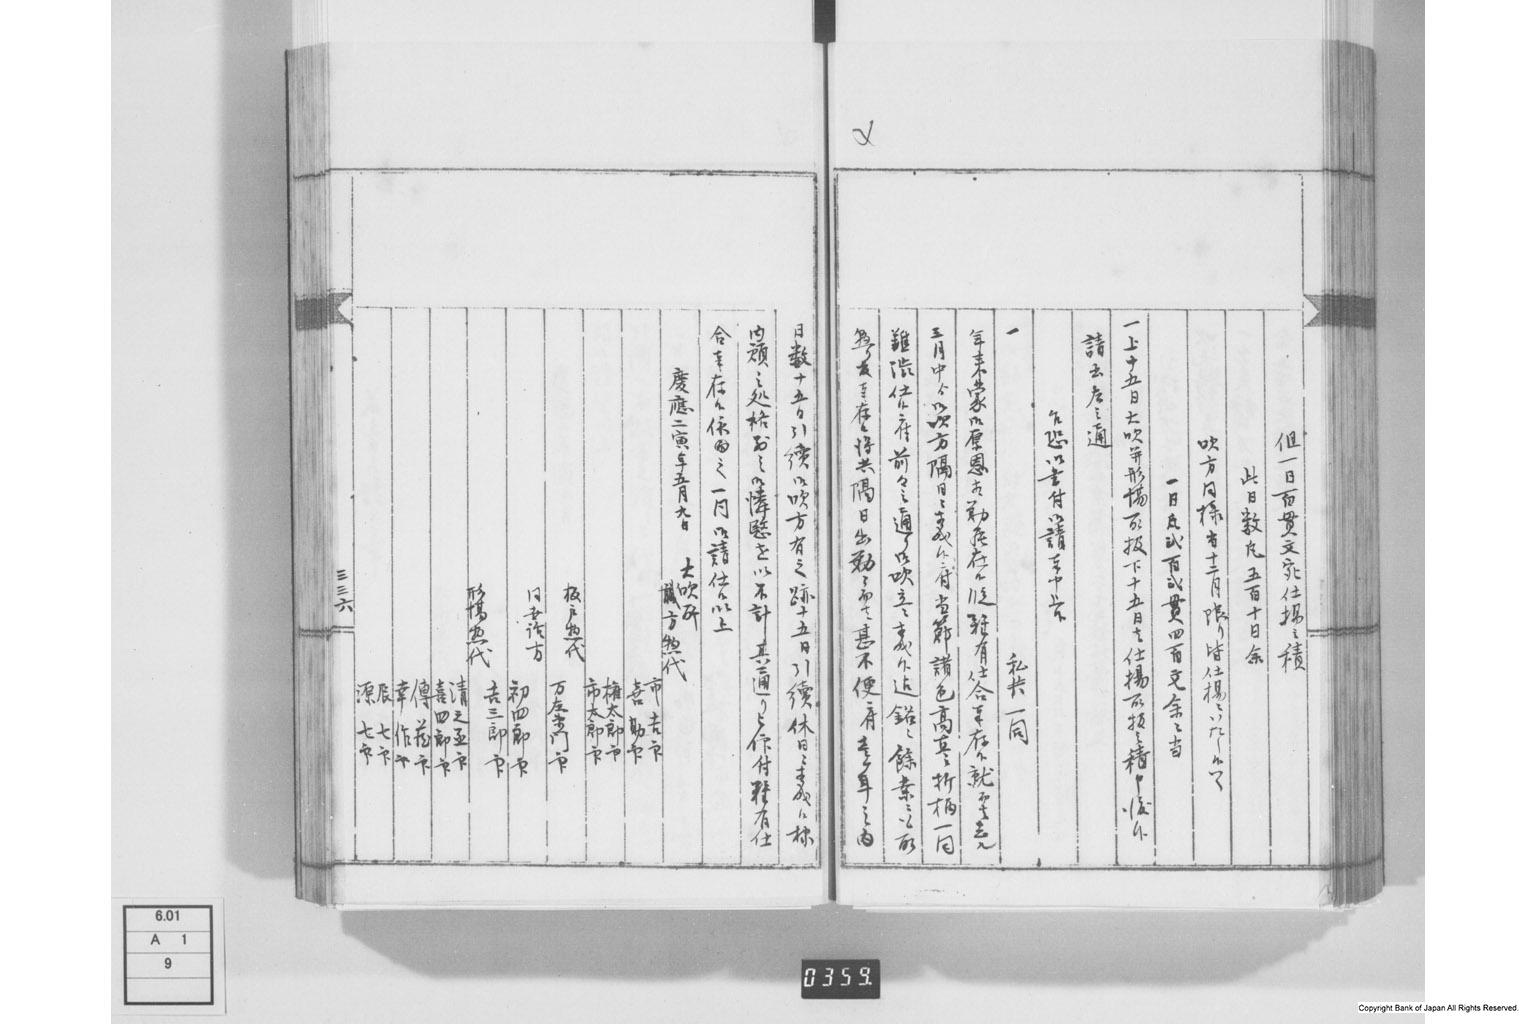 但一日百貫文宛仕揚之積
此日数凡五百十日余
吹方同様当十二月限り皆仕揚ニいたし候ハヽ
一日凡弐百弐貫四百文余之当
一上十五日大吹并形場取扱下十五日者仕揚取扱之積申渡候
請書左之通
乍恐以書付御請奉申上候
一
私共一同
年来蒙御厚恩相勤罷在候段難有仕合奉存候就而者去
三月中ゟ御吹方隔日ニ相成候付当節諸色高直之折柄一同
難渋仕候付前々之通り御吹立ニ相成候迄銘々余業ニ
奉存候得共隔日出勤ニ而者甚不便付壱ヶ年之内
日数十五日引続御吹方有之跡十五日引続休日ニ相成候様
内願之処格別之御憐愍を以不計其通り被仰付難有仕
合奉存候依而之一同御請仕候以上
慶應二寅年五月九日
大吹所
職方惣代
市吉
喜助
権太郎
市太郎
板戸惣代
万左衛門
同世話方
初四郎
吉三郎
形場惣代
清之丞
喜四郎
傳蔵
幸作
辰七
源七
三三六
6.01
A 1
9
0359.
Copyright Bank of Japan All Rights Reserved.